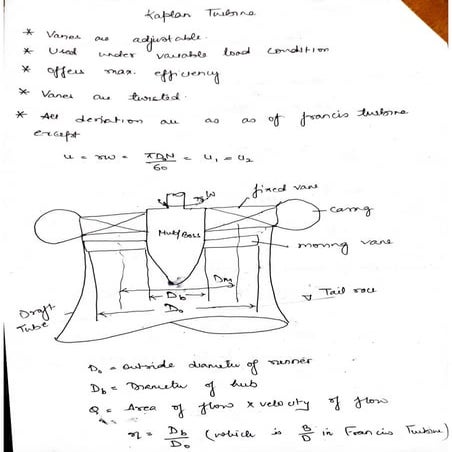 Kaplan Turbine
* Vanes are adjustable.
* Used under variable load condition
* Offers max. efficiency
* Vanes are twisted.
* All derivation are as as of francis turbine
except
u = rω = πD₀N/60 = u₁ = u₂
ω
fixed vane
casing
Hub/Boss
moving vane
Dm
Db
D₀
Tail race
Draft
Tube
D₀ = outside diameter of runner
Db = Diameter of hub
Q = Area of flow x velocity of flow
n = Db/D₀ (which is B/D in Francis Turbine)